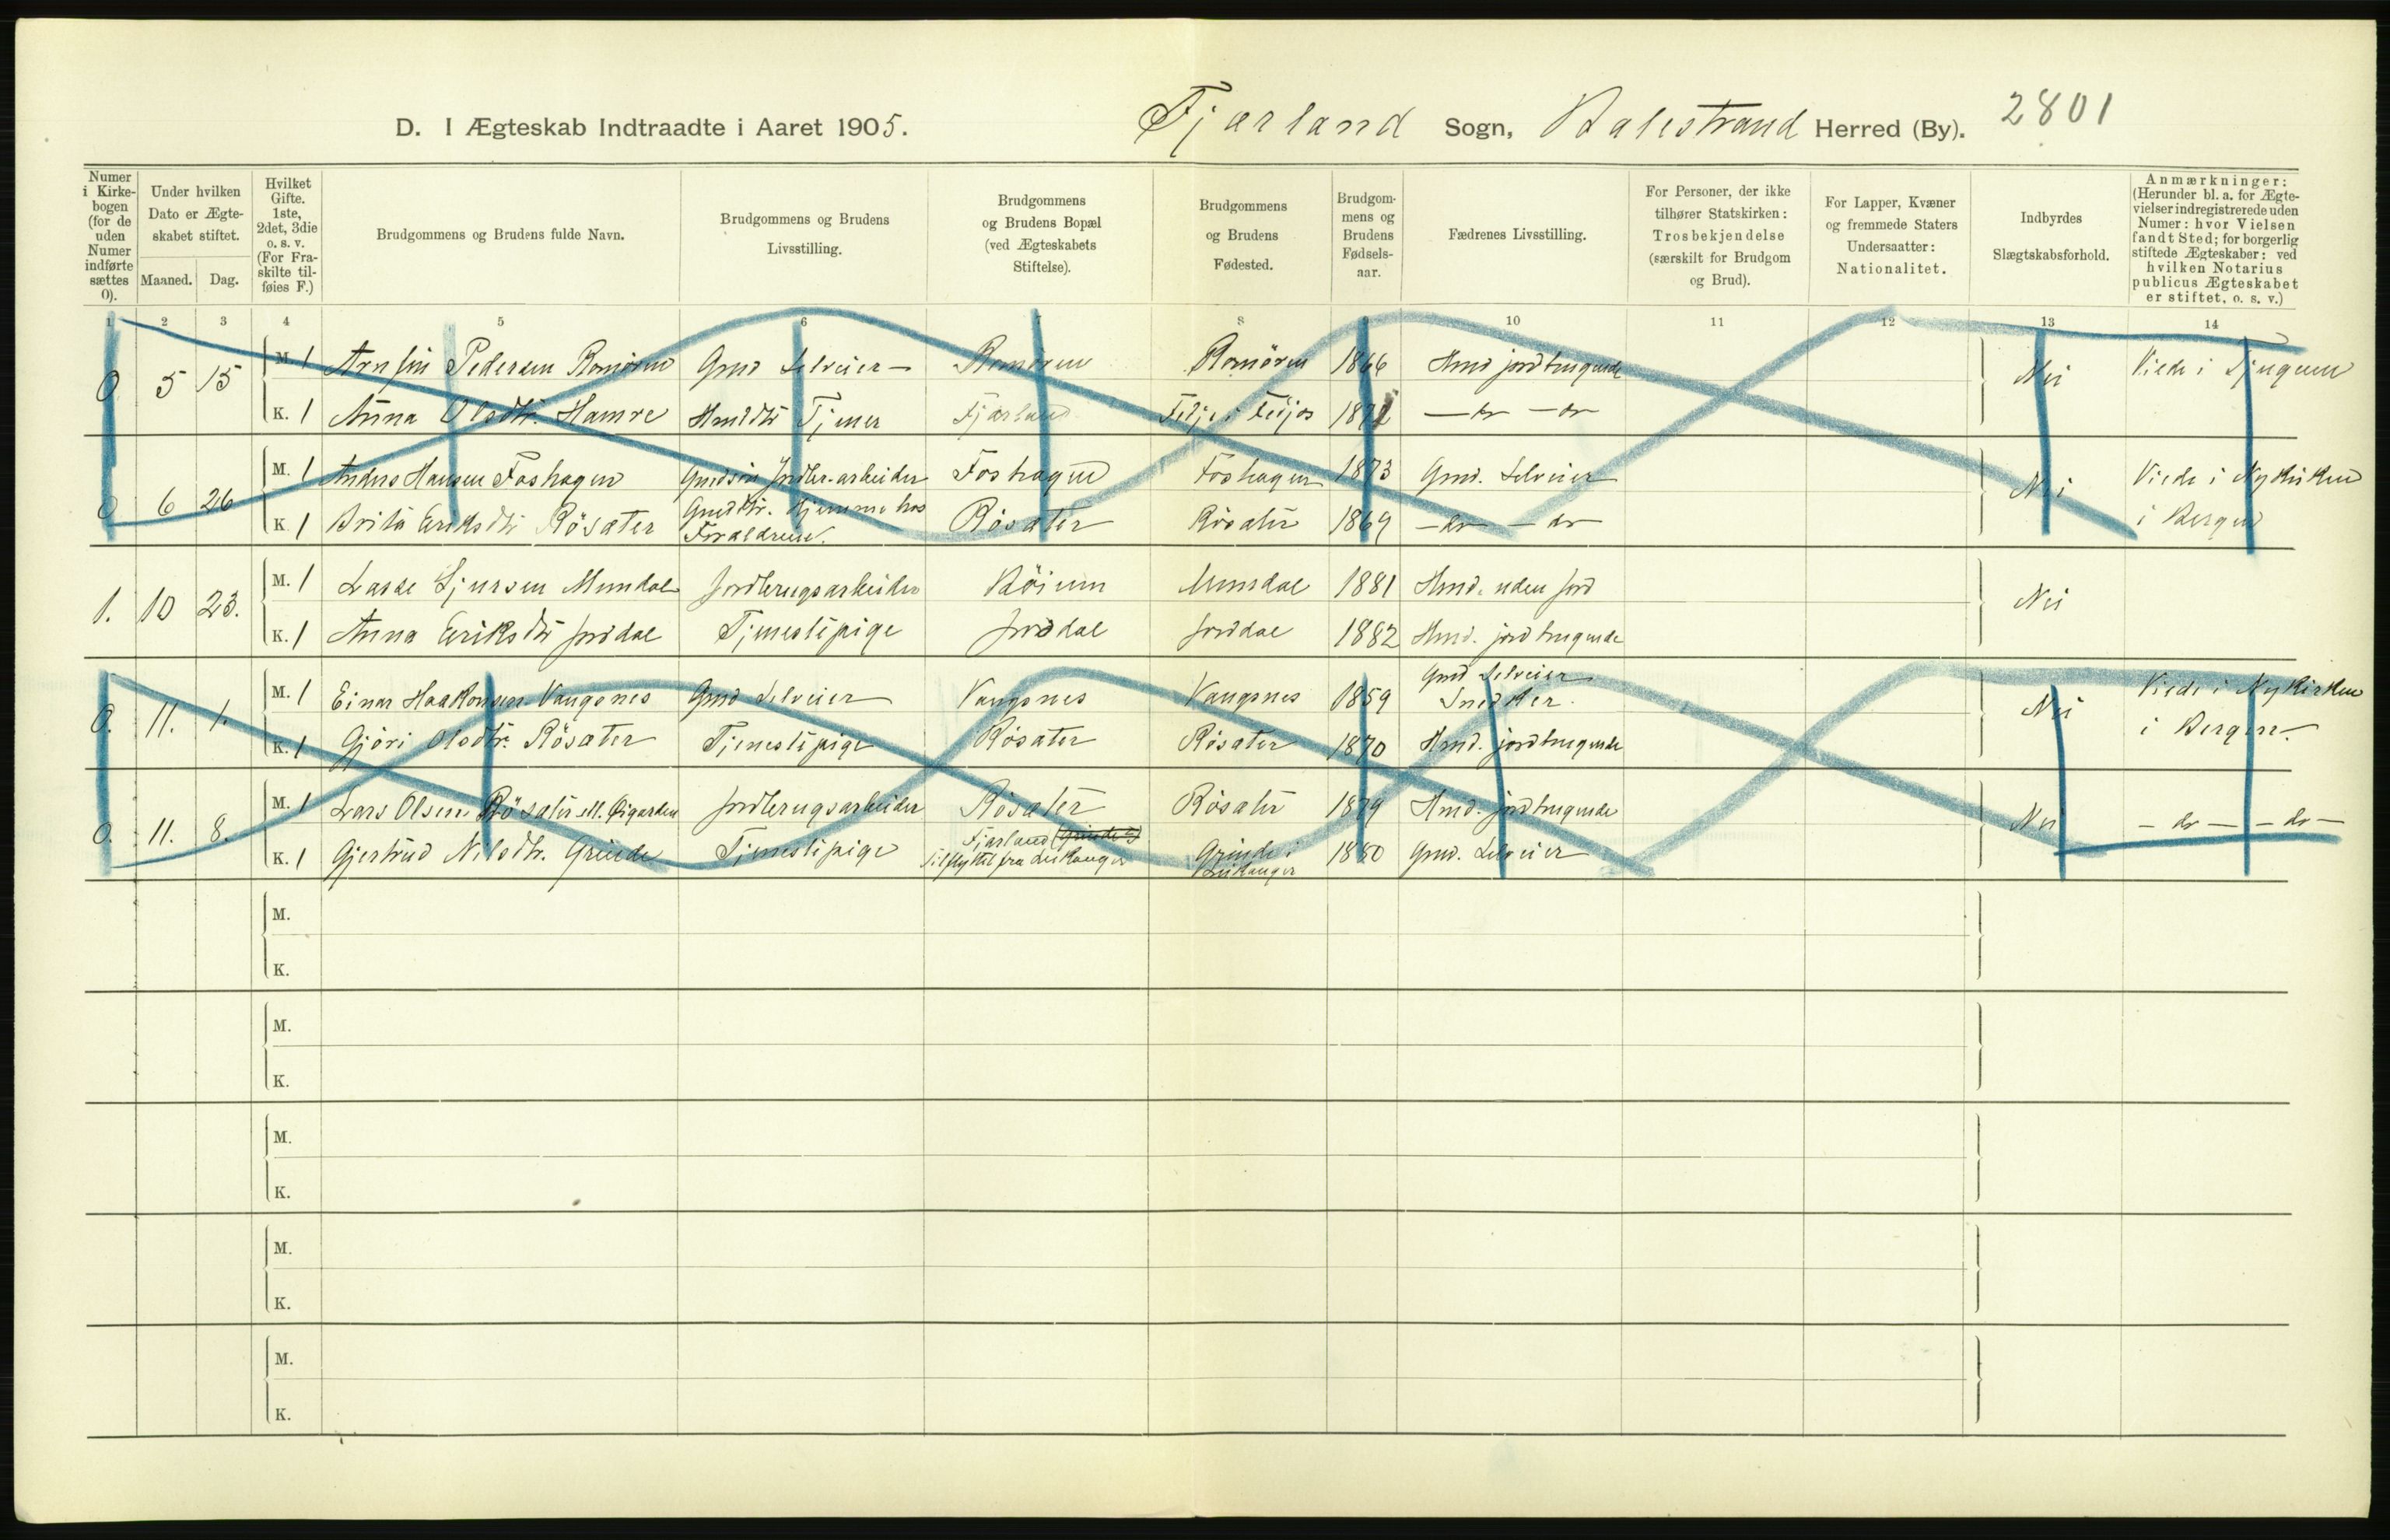 D. I Ægteskab Indtraadte i Aaret 1905. Fjærland Sogn, Balestrand Herred (By). 2801
Numer i Kirke-bogen (for de uden Numer indførte sættes 0).
Under hvilken Dato er Ægte-skabet stiftet.
Maaned. Dag.
Hvilket Gifte. 1ste, 2det, 3die o. s. v. (For Fra-skilte til-føies F.)
Brudgommens og Brudens fulde Navn.
Brudgommens og Brudens Livsstilling.
Brudgommens og Brudens Bopæl (ved Ægteskabets Stiftelse).
Brudgommens og Brudens Fødested.
Brudgom-mens og Brudens Fødsels-aar.
Fædrenes Livsstilling.
For Personer, der ikke tilhører Statskirken: Trosbekjendelse (særskilt for Brudgom og Brud).
For Lapper, Kvæner og fremmede Staters Undersaatter: Nationalitet.
Indbyrdes Slægtskabsforhold.
Anmærkninger: (Herunder bl. a. for Ægte-vielser indregistrerede uden Numer: hvor Vielsen fandt Sted; for borgerlig stiftede Ægteskaber: ved hvilken Notarius publicus Ægteskabet er stiftet, o. s. v.)
1 2 3 4 5 6 7 8 9 10 11 12 13 14
0 5 15 M. 1 Pedersen Romören Gmd Selveier Romören Romören 1866 Hmd jordbrugende Nei Viede i Tjugum
K. 1 Anna Olsdtr. Hamre Hmddtr Tjener Fjærland Fedje i 187 — do — do
0 6 26 M. 1 Anders Hansen Foshagen Gmdsön Jordbr.-arbeider Foshagen Foshagen 1873 Gmd. Selveier Nei Viede i Nykirken
K. 1 Brita Eriksdtr Rösæter Gmddtr. hjemme hos Forældrene. Rösæter Rösæter 1869 — do — do i Bergen
1. 10 23. M. 1 Lasse Sjursen Mundal Jordbrugsarbeider Böium Mundal 1881 Hmd. uden jord Nei
K. 1 Anna Eriksdtr Jordal Tjenestepige Jordal Jordal 1882 Hmd. jordbrugende
0. 11. 1. M. 1 Einar Haakonsen Vangsnes Gmd Selveier Vangsnes Vangsnes 1859 Gmd Selveier Snedker. Nei Viede i Nykirken
K. 1 Gjöri Olsdtr. Rösæter Tjenestepige Rösæter Rösæter 1870 Hmd. jordbrugende i Bergen.
0. 11. 8. M. 1 Lars Olsen Rösæter ell. Öigarden Jordbrugsarbeider Rösæter Rösæter 1879 Hmd. jordbrugende Nei — do — — do —
K. 1 Gjertrud Nilsdtr. Grinde Tjenestepige Fjærland (Grinde) tilflyttet fra Leikanger Grinde i Leikanger 1880 Gmd. Selveier
M.
K.
M.
K.
M.
K.
M.
K.
M.
K.